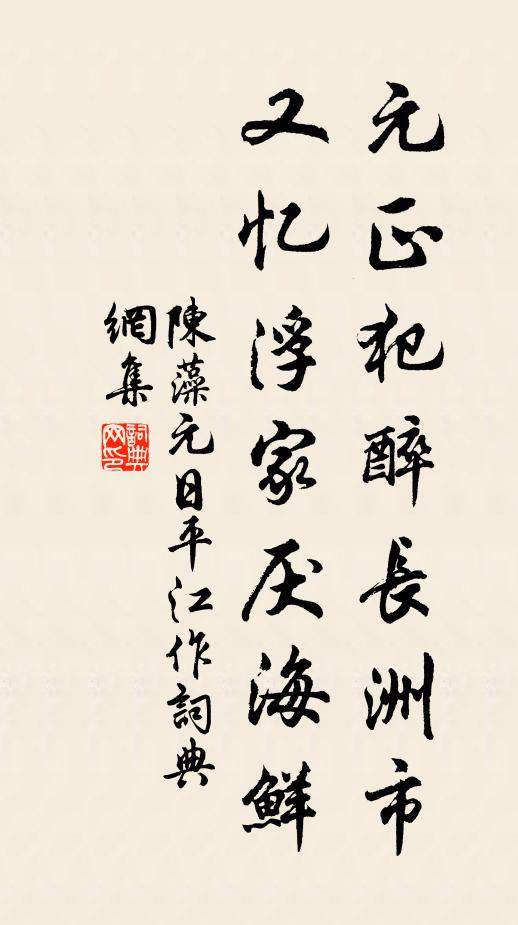 元正犯醉長洲市
又忆浮家厌海鮮
陳藻元日平江作詞典
網集
詞典网印